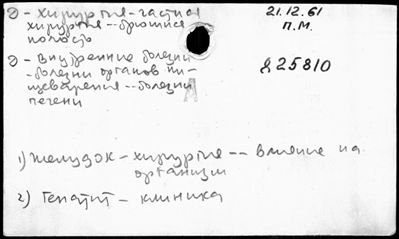 ② - хирургия - частная
хирургия -- брюшная
полость
② - Внутренние болезни
- болезни органов пи-
щеварения -- болезни
печени
21.12.61
П.М.
д25810
А
1) Желудок - хирургия -- влияние на
организм
2) Гепатит - клиника